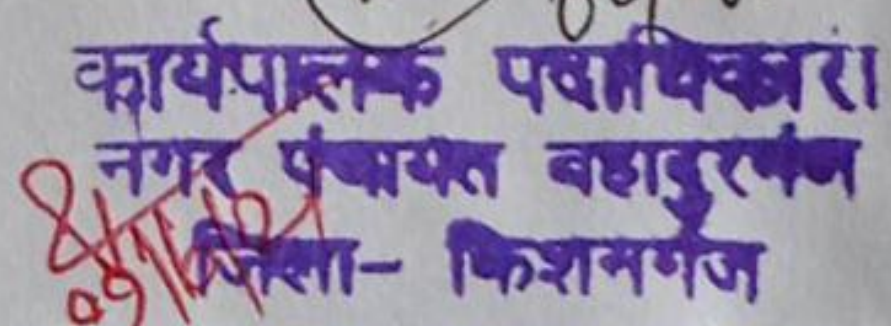 कार्यपालक पदाधिकारी
नगर पंचायत बहादुरगंज
जिला- किशनगंज